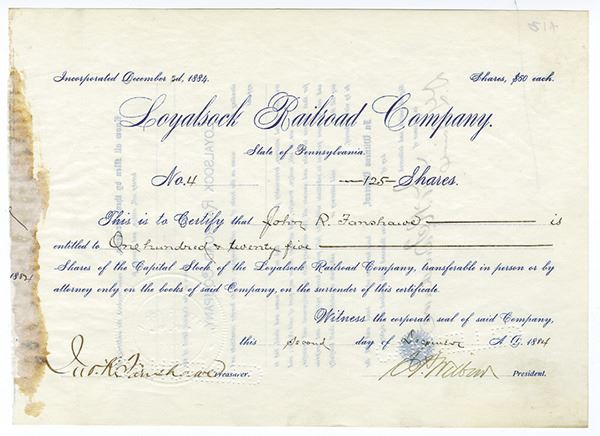 Incorporated December 2d, 1884. Shares, $50 each.
Loyalsock Railroad Company.
State of Pennsylvania.
No. 4 —125— Shares.
This is to Certify that John R. Fanshawe is
entitled to One hundred & twenty five
Shares of the Capital Stock of the Loyalsock Railroad Company, transferable in person or by
attorney only on the books of said Company, on the surrender of this certificate.
1884
Witness the corporate seal of said Company,
this second day of December A.D. 1884
Jno. R. Fanshawe Treasurer. President.